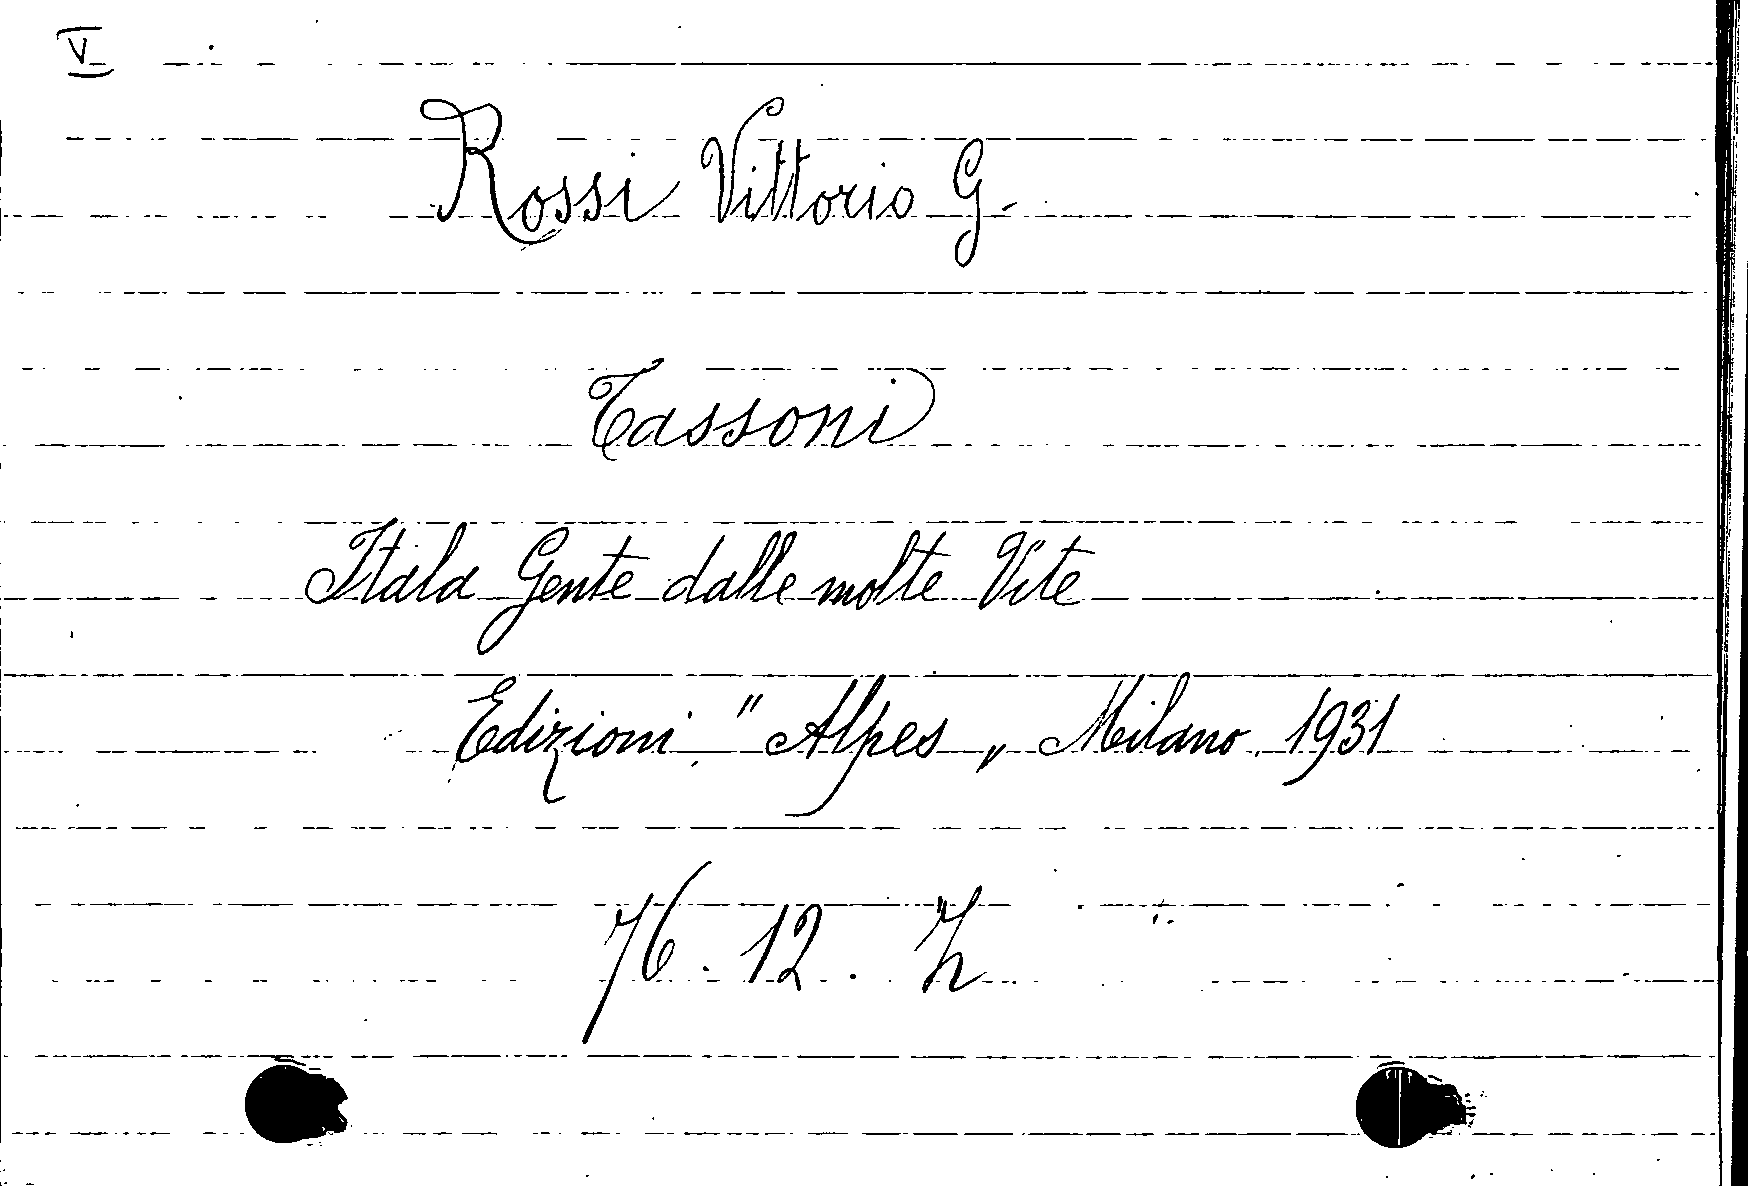 V
Rossi Vittorio G.
Tassoni
Itala Gente dalle molte Vite
Edizioni "Alpes„ Milano 1931
76. 12. h